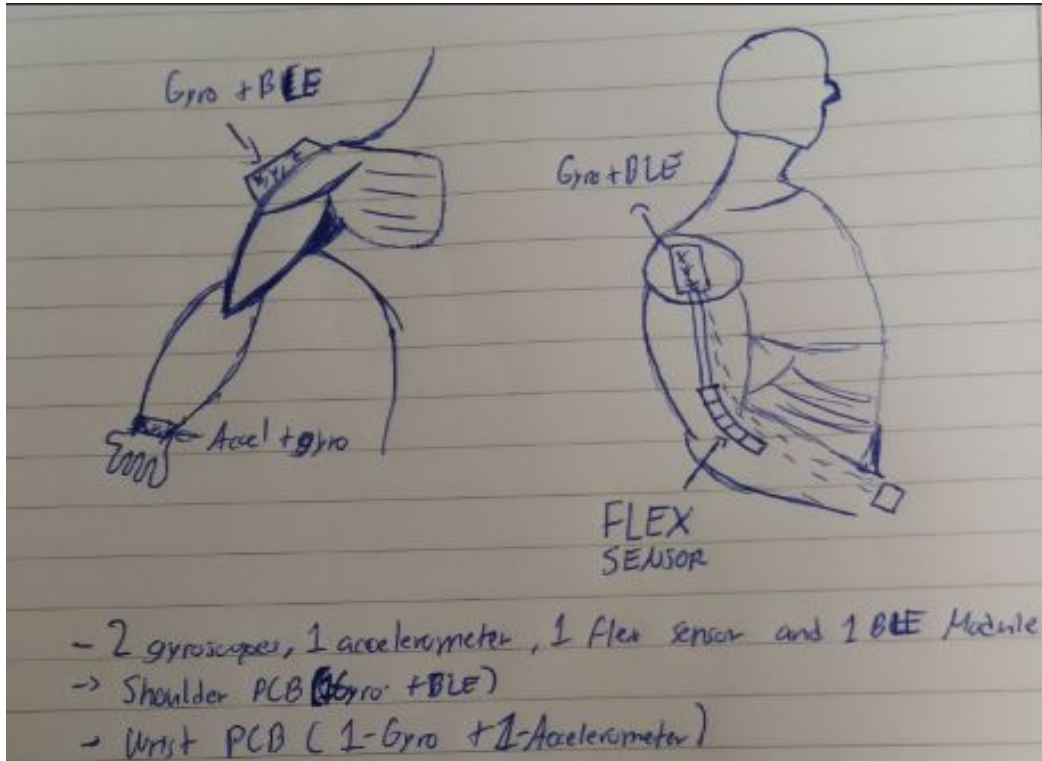 Gyro + BLE
Gyro + BLE
Accel + gyro
FLEX
SENSOR
- 2 gyroscopes, 1 accelerometer, 1 flex sensor and 1 BLE Module
-> Shoulder PCB (Gyro + BLE)
-> Wrist PCB ( 1-Gyro + 1-Accelerometer)